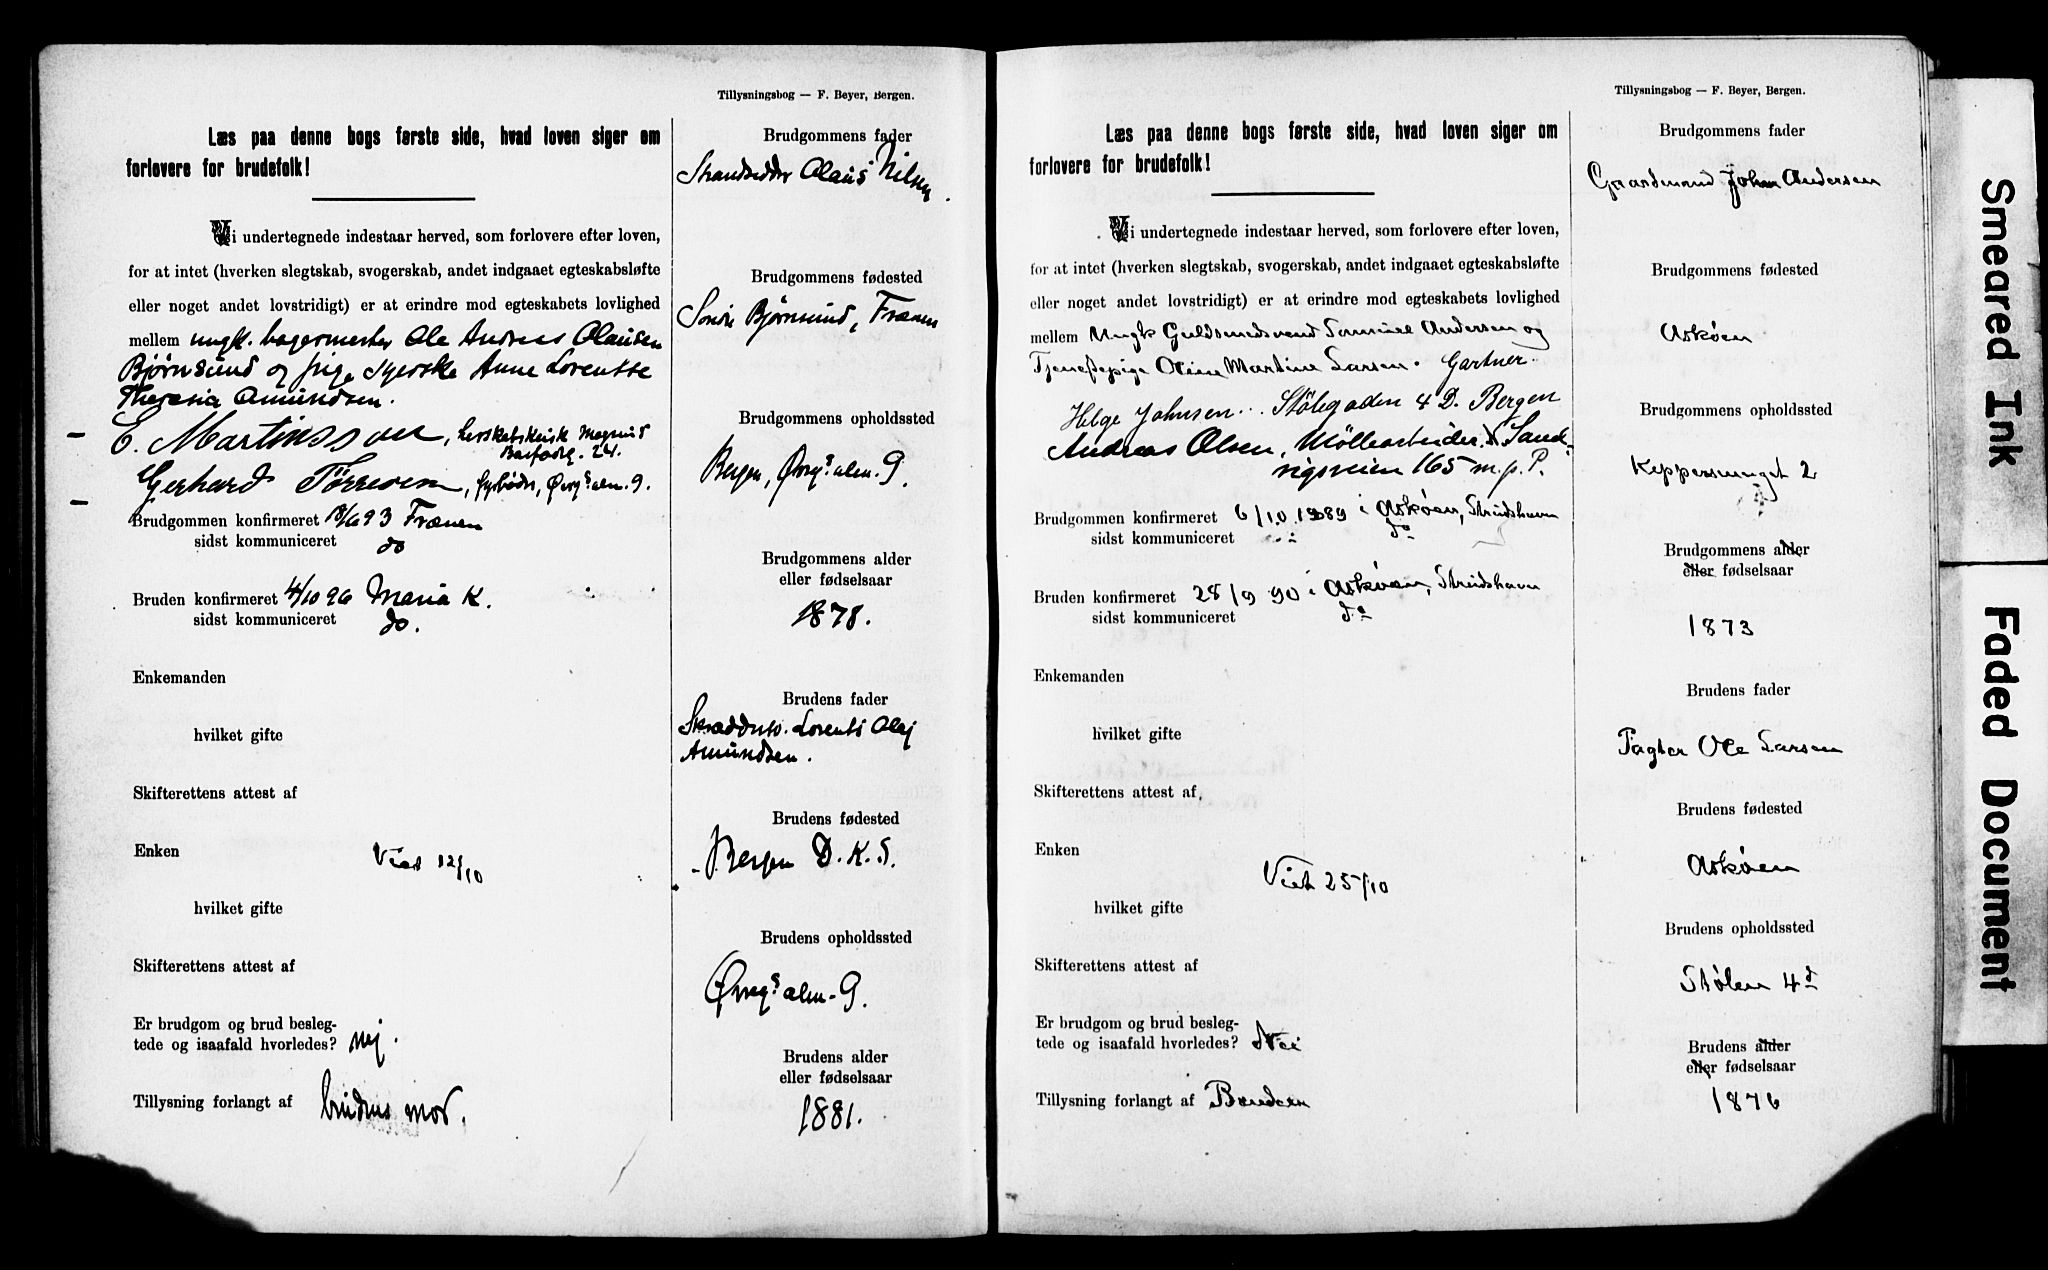 Tillysningsbog — F. Beyer, Bergen.
Læs paa denne bogs første side, hvad loven siger om
forlovere for brudefolk!
Vi undertegnede indestaar herved, som forlovere efter loven,
for at intet (hverken slegtskab, svogerskab, andet indgaaet egteskabsløfte
eller noget andet lovstridigt) er at erindre mod egteskabets lovlighed
mellem ungk. bagermester Ole Andreas Olausen
Bjørnsund og pige syerske Anne Lorentse
Theresia Amundsen.
E. Martinsson, herskabskusk Magnus
Barfodsg. 24.
Gerhard Tørresen, fyrbøder, Øvregs alm. 9.
Brudgommen konfirmeret 18/6 93 Frænen
sidst kommuniceret do
Bruden konfirmeret 4/10 96 Maria K.
sidst kommuniceret do.
Enkemanden
hvilket gifte
Skifterettens attest af
Enken
Viet 12/10
hvilket gifte
Skifterettens attest af
Er brudgom og brud besleg-
tede og isaafald hvorledes? nej.
Tillysning forlangt af brudens mor.
Brudgommens fader
Strandsidder Olaus Nilsen.
Brudgommens fødested
Søndre Bjørnsund, Frænen
Brudgommens opholdssted
Bergen, Øvregs alm. 9.
Brudgommens alder
eller fødselsaar
1878.
Brudens fader
Skræddersv. Lorents Olaj
Amundsen.
Brudens fødested
Bergen D. K. S.
Brudens opholdssted
Øvregs alm. 9.
Brudens alder
eller fødselsaar
1881.
Tillysningsbog — F. Beyer, Bergen.
Læs paa denne bogs første side, hvad loven siger om
forlovere for brudefolk!
Vi undertegnede indestaar herved, som forlovere efter loven,
for at intet (hverken slegtskab, svogerskab, andet indgaaet egteskabsløfte
eller noget andet lovstridigt) er at erindre mod egteskabets lovlighed
mellem Ungk Guldsmedsvend Samuel Andersen og
Tjenestepige Oline Martine Larsen. Gartner.
Helge Johnsen... Stølegaden 4 D. Bergen
Andreas Olsen, Møllearbeider. Sand-
vigsveien 165 m. p. P.
Brudgommen konfirmeret 6/10 1889 i Askøen, Strudshavn
sidst kommuniceret do
Bruden konfirmeret 28/9 90 i Askøen, Strudshavn
sidst kommuniceret do
Enkemanden
hvilket gifte
Skifterettens attest af
Enken
Viet 25/10
hvilket gifte
Skifterettens attest af
Er brudgom og brud besleg-
tede og isaafald hvorledes? Nei
Tillysning forlangt af Bruden
Brudgommens fader
Gaardmand John Andersen
Brudgommens fødested
Askøen
Brudgommens opholdssted
Keppersmuget 2
Brudgommens alder
eller fødselsaar
1873
Brudens fader
Pagter Ole Larsen
Brudens fødested
Askøen
Brudens opholdssted
Stølen 4d
Brudens alder
eller fødselsaar
1876
Smeared Ink
Faded Document